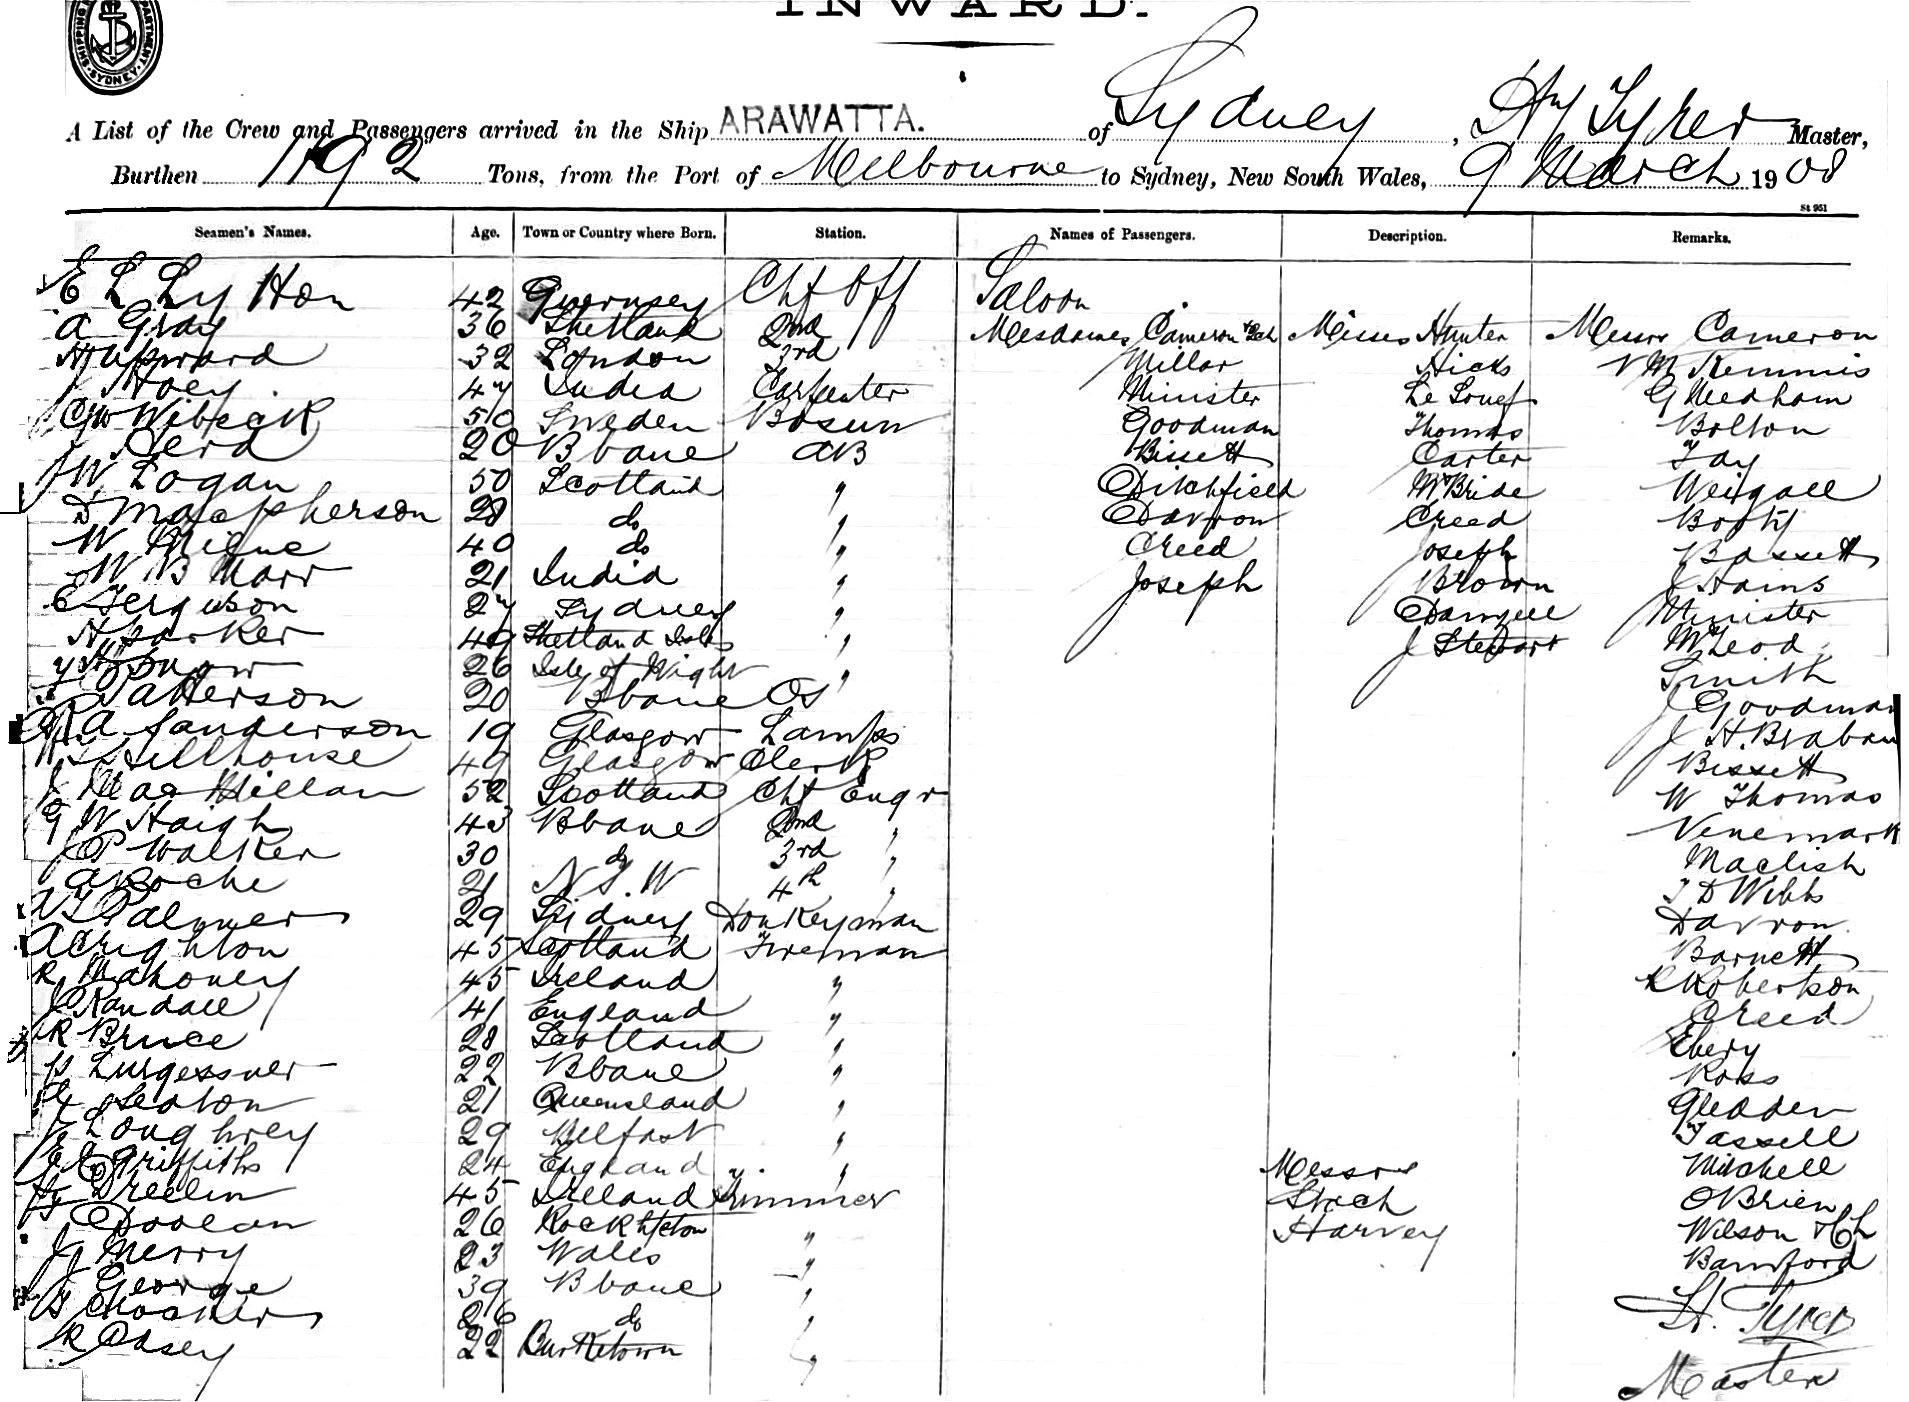 INWARD.
SHIPPING DEPARTMENT. SYDNEY.
A List of the Crew and Passengers arrived in the Ship ARAWATTA. of Sydney, Hy Tyrer Master,
Burthen 1192 Tons, from the Port of Melbourne to Sydney, New South Wales, 9 March 1908
St 951
Seamen's Names. Age. Town or Country where Born. Station. Names of Passengers. Description. Remarks.
E L Lytton 42 Guernsey Chf Off Saloon
A Gray 36 Shetland 2nd Mesdames Cameron Misses Hunter Messrs Cameron
H Upward 32 London 3rd Millar Hicks Kemmis
J Hoey 47 India Carpenter Minister Le Souef G Needham
Wibeck 50 Sweden Bosun Goodman Thomas Bolton
J Herd 20 Bbane AB Bissett Carter Fay
W Logan 50 Scotland " Ditchfield McBride Weigall
D Macpherson 28 do " Davron Creed Booty
W Milne 40 do " Creed Joseph Bassett
W B Marr 21 India " Joseph Brown J Hains
E Ferguson 27 Sydney " Dangell Minister
H Barker 49 Shetland Isles " J Stewart McLeod
26 Isle of Wight " Smith
Patterson 20 Bbane OS J Goodman
R A Sanderson 19 Glasgow Lamps J H. Braban
W L Hillhouse 49 Glasgow Clerk Bissett
J MacMillan 52 Scotland Chf Engr W Thomas
G W Haigh 43 Bbane 2nd " Venemark
J P Walker 30 do 3rd " Maclish
A Roche 21 N S. W 4th " T D Wibbs
A J Palmer 29 Sydney Donkeyman Davron
A Crighton 45 Scotland Fireman Barnett
R Mahoney 45 Ireland " R Robertson
J Randall 41 England " Creed
R Bruce 28 Scotland " Ebery
P Lurgessner 22 Bbane " Ross
Seaton 21 Queensland " Gledden
J Loughrey 29 Belfast " Tassell
E C Griffiths 24 England " Messrs Mitchell
Hy Dreelin 45 Ireland Trimmer Stoch OBrien
Doolan 26 Rockhpton " Harvey Wilson & Ch
J Merry 23 Wales " Bamford
J George 39 Bbane "
T Crocker 26 do H. Tyrer
R Casey 22 Burketown " Master